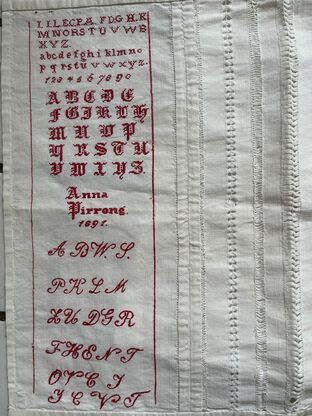 I.I.L.E.C.P.Æ. F.D.G.H.K
MNORSTUVWB
XYZ.
abcdefghiklmno
pqrstüvwxyz.
1234567890
ABCDE
FGIKLH
MNOP
QRSTU
VWXYZ.
Anna
Pirrong.
1891.
A B W. S.
P K L M
Z U D G R
F H E N T
O V C J
Y C V T